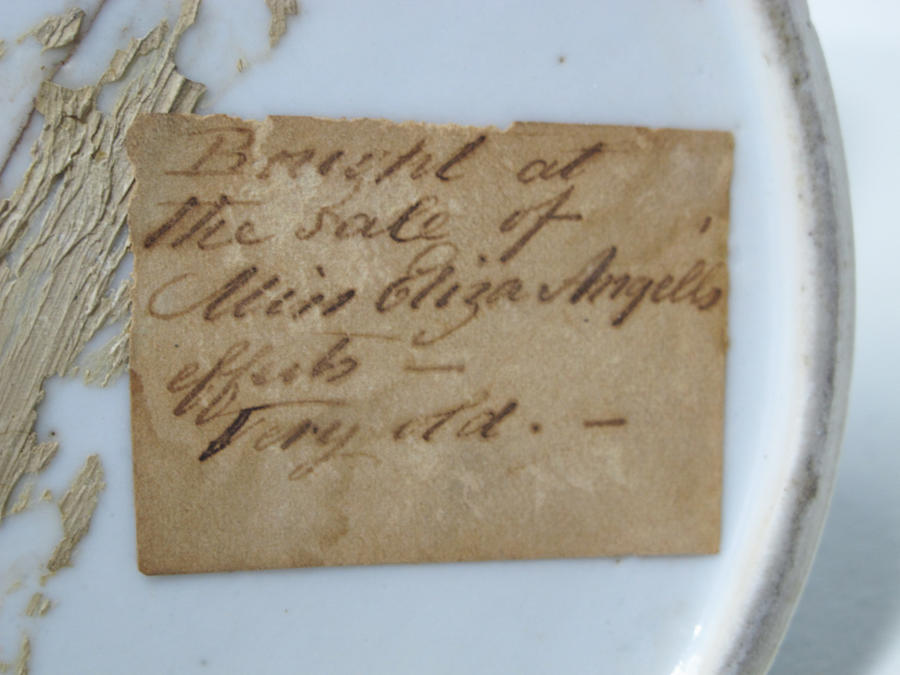 Bought at
the sale of
Miss Eliza Angell's
effects —
Very old. —